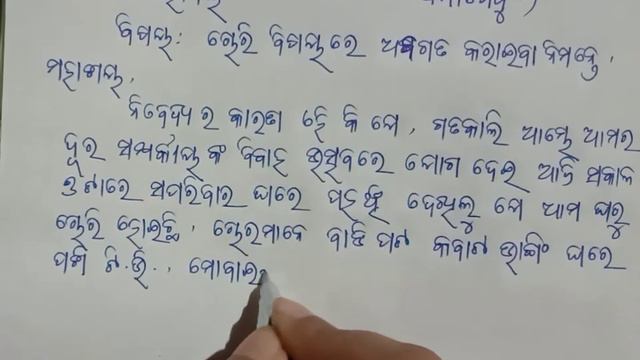 ବିଷୟ: ଚୋରି ବିଷୟରେ ଅବଗତ କରାଇବା ନିମନ୍ତେ,
ମହାଶୟ,
ନିବେଦନ ର କାରଣ ହେଁ କି ଯେ, ଗତକାଲି ଆମ୍ଭେ ଆମର
ଦୂର ସମ୍ପର୍କୀୟ ଙ୍କ ବିବାହ ଉତ୍ସବରେ ଯୋଗ ଦେଇ ଆଜି ସକାଳ
୬ଟାରେ ସପରିବାର ଘରେ ପହଞ୍ଚି ଦେଖିଲୁ ଯେ ଆମ ଘରୁ
ଚୋରି ହୋଇଛି, ଚୋରମାନେ ବାଡିପଟ କବାଟ ଭାଙ୍ଗି ଘରେ
ପଶି ଟି.ଭି., ମୋବାଇଲ